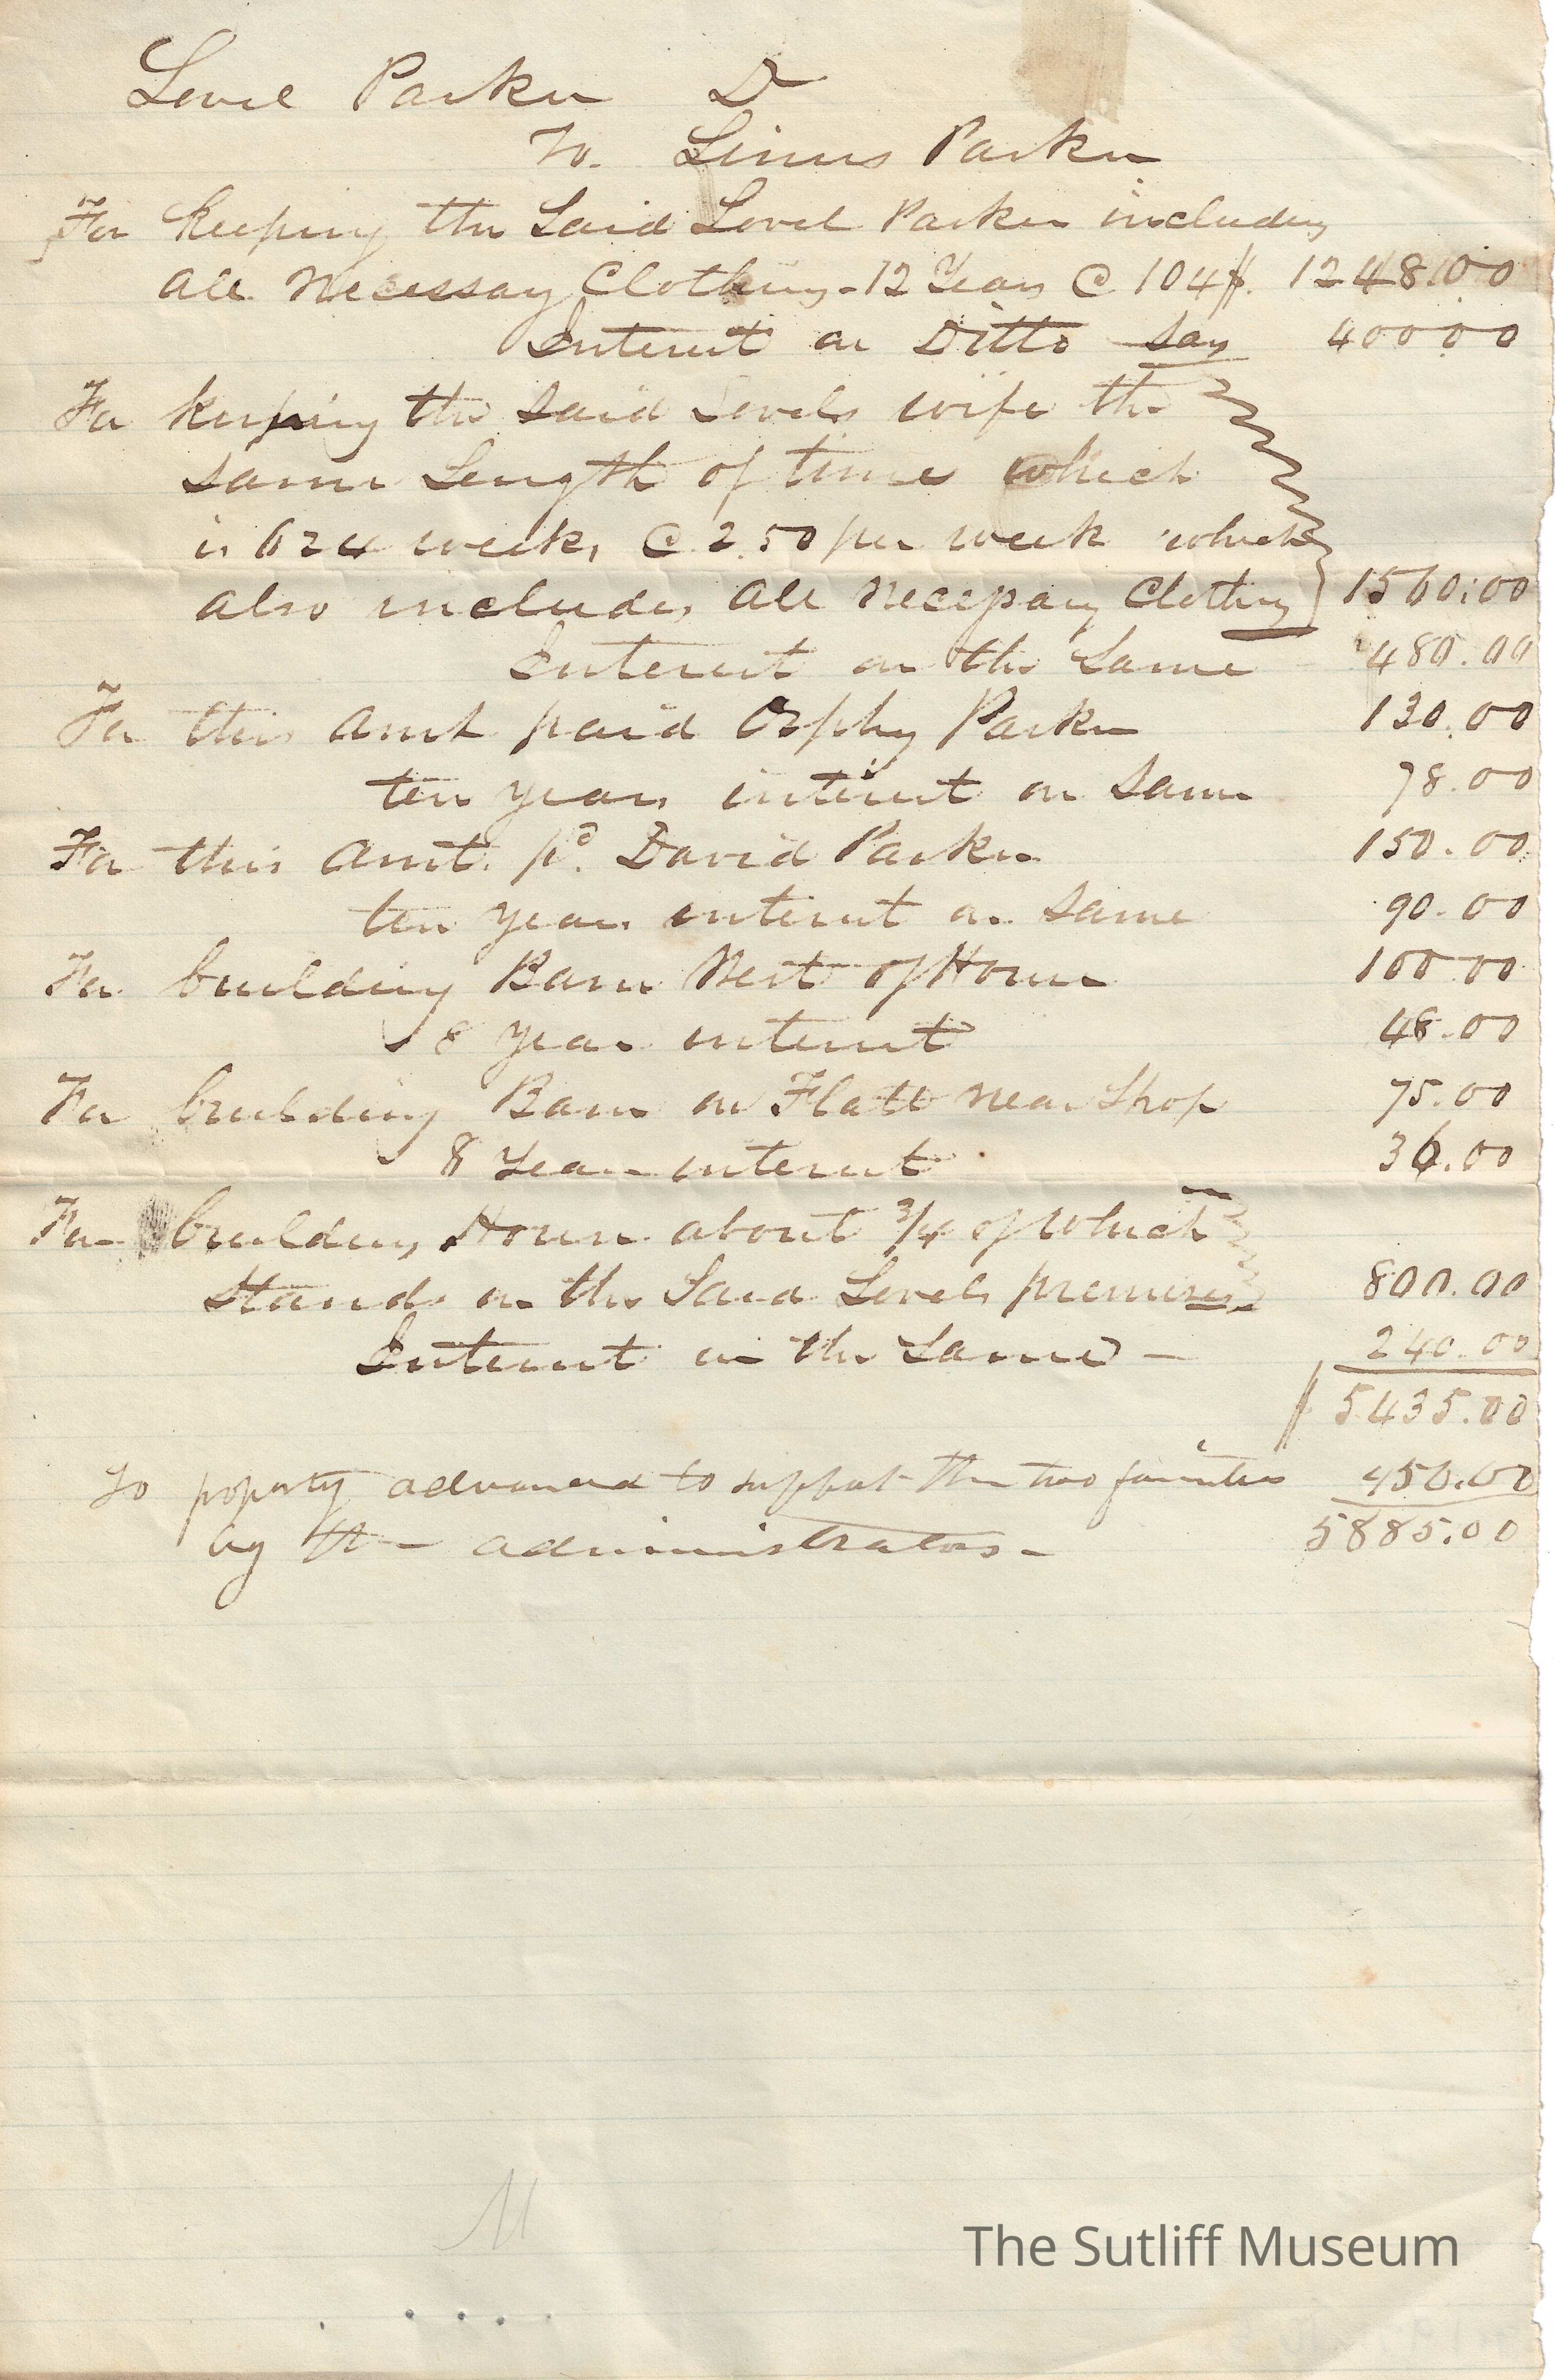 Lovel Parker Dr
To. Linus Parker
For keeping the Said Lovel Parker including
all necessary Clothing - 12 Years @ 104$. 1248.00
Interest on Ditto say 400 00
For keeping the said Lovels wife the
same Length of time which
is 624 weeks @ 2.50 per week which
also includes all necessary Clothing 1560:00
Interest on the Same 480.00
For this Amt paid Orphy Parker 130.00
ten years interest on same 78.00
For this amt. pd. David Parker 150.00
ten years interest on same 90.00
For building Barn West of House 100 00
8 years interest 48.00
For building Barn on Flatt near Shop 75.00
8 Years interest 36.00
For building House about 3/4 of which
Stands on the Said Lovels premises 800.00
Interest on the Same - 240.00
$ 5435.00
To property advanced to support the two families 450.00
by the administrators - 5885.00
The Sutliff Museum